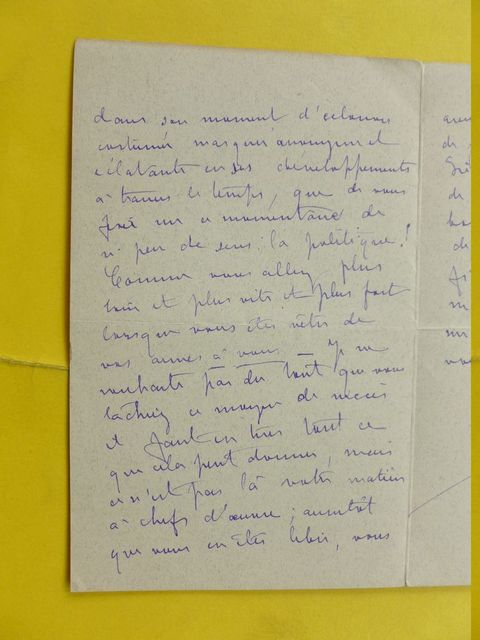 dans son moment d'éclosion
costumé masqué anonyme et
éclatante en ses développements
à travers le temps, que de vous
fixé sur ce momentané de
si peu de sens : la politique !
Comme vous allez plus
loin et plus vite et plus fort
lorsque vous êtes vêtu de
vos armes à vous — Je ne
souhaite pas du tout que vous
lâchiez ce moyen de succès
et faut en tirer tout ce
que cela peut donner, mais
ce n'est pas là votre matière
à chefs d'œuvre ; aussitôt
que vous en êtes libre, vous
de
de